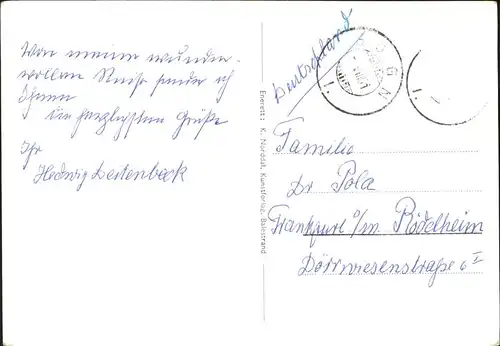 Von meiner wunder-
vollen Reise sende ich
Ihnen
die herzlichsten Grüße
Ihr
Hedwig
Enerett: K. Nordahl, Kunstforlag, Balestrand
Deutschland
Familie
Dr Pola
Frankfurt a/m. Rödelheim
Dörrwiesenstraße 6 I